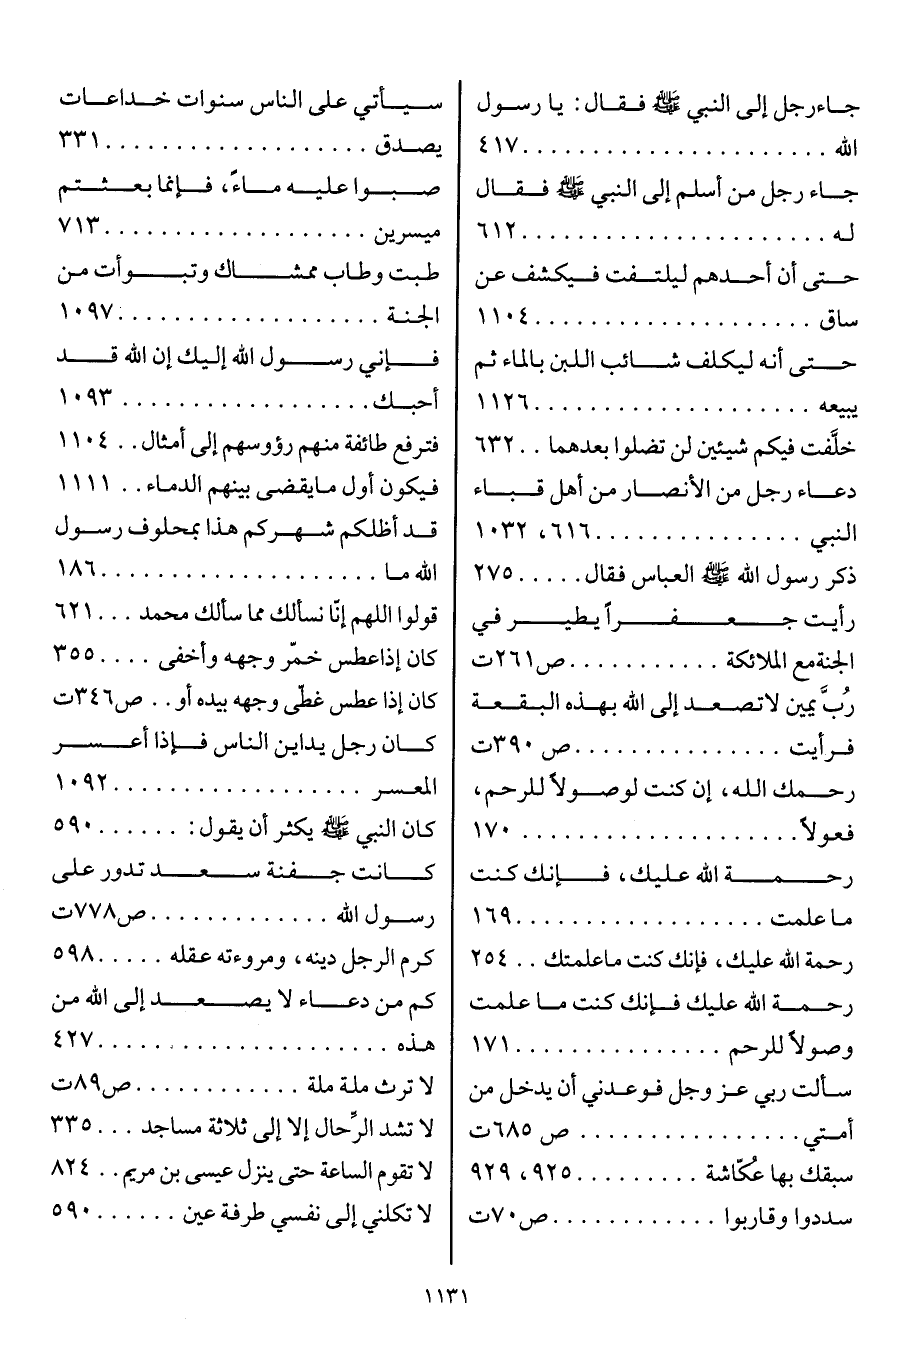 جاء رجل إلى النبي ﷺ فقال: يا رسول
الله ..................... ٤١٧
جاء رجل من أسلم إلى النبي ﷺ فقال
له ..................... ٦١٢
حتى أن أحدهم ليلتفت فيكشف عن
ساق .................... ١١٠٤
حتى أنه ليكلف شائب اللبن بالماء ثم
يبيعه .................... ١١٢٦
خلَّفت فيكم شيئين لن تضلوا بعدهما .. ٦٣٢
دعاء رجل من الأنصار من أهل قباء
النبي ............... ٦١٦، ١٠٣٢
ذكر رسول الله ﷺ العباس فقال ..... ٢٧٥
رأيت جعفراً يطير في
الجنة مع الملائكة ........... ص٢٦١ت
رُبَّ يمين لا تصعد إلى الله بهذه البقعة
فرأيت ................ ص ٣٩٠ت
رحمك الله، إن كنت لوصولاً للرحم،
فعولاً ................... ١٧٠
رحمة الله عليك، فإنك كنت
ما علمت .................. ١٦٩
رحمة الله عليك، فإنك كنت ما علمتك .. ٢٥٤
رحمة الله عليك فإنك كنت ما علمت
وصولاً للرحم ............... ١٧١
سألت ربي عز وجل فوعدني أن يدخل من
أمتي ................. ص ٦٨٥ت
سبقك بها عكّاشة ......... ٩٢٥، ٩٢٩
سددوا وقاربوا ............ ص٧٠ت
سيأتي على الناس سنوات خداعات
يصدق ................... ٣٣١
صبوا عليه ماءً، فإنما بعثتم
ميسرين .................. ٧١٣
طبت وطاب ممشاك وتبوأت من
الجنة ................... ١٠٩٧
فإني رسول الله إليك إن الله قد
أحبك .................. ١٠٩٣
فترفع طائفة منهم رؤوسهم إلى أمثال .. ١١٠٤
فيكون أول ما يقضى بينهم الدماء .. ١١١١
قد أظلكم شهركم هذا بمحلوف رسول
الله ما .................... ١٨٦
قولوا اللهم إنّا نسألك مما سألك محمد ... ٦٢١
كان إذا عطس خمّر وجهه وأخفى .... ٣٥٥
كان إذا عطس غطّى وجهه بيده أو .. ص٣٤٦ت
كان رجل يداين الناس فإذا أعسر
المعسر .................. ١٠٩٢
كان النبي ﷺ يكثر أن يقول: ...... ٥٩٠
كانت جفنة سعد تدور على
رسول الله ............. ص٧٧٨ت
كرم الرجل دينه، ومروءته عقله ..... ٥٩٨
كم من دعاء لا يصعد إلى الله من
هذه ..................... ٤٢٧
لا ترث ملة ملة ............ ص٨٩ت
لا تشد الرِّحال إلا إلى ثلاثة مساجد ... ٣٣٥
لا تقوم الساعة حتى ينزل عيسى بن مريم .. ٨٢٤
لا تكلني إلى نفسي طرفة عين ...... ٥٩٠
١١٣١